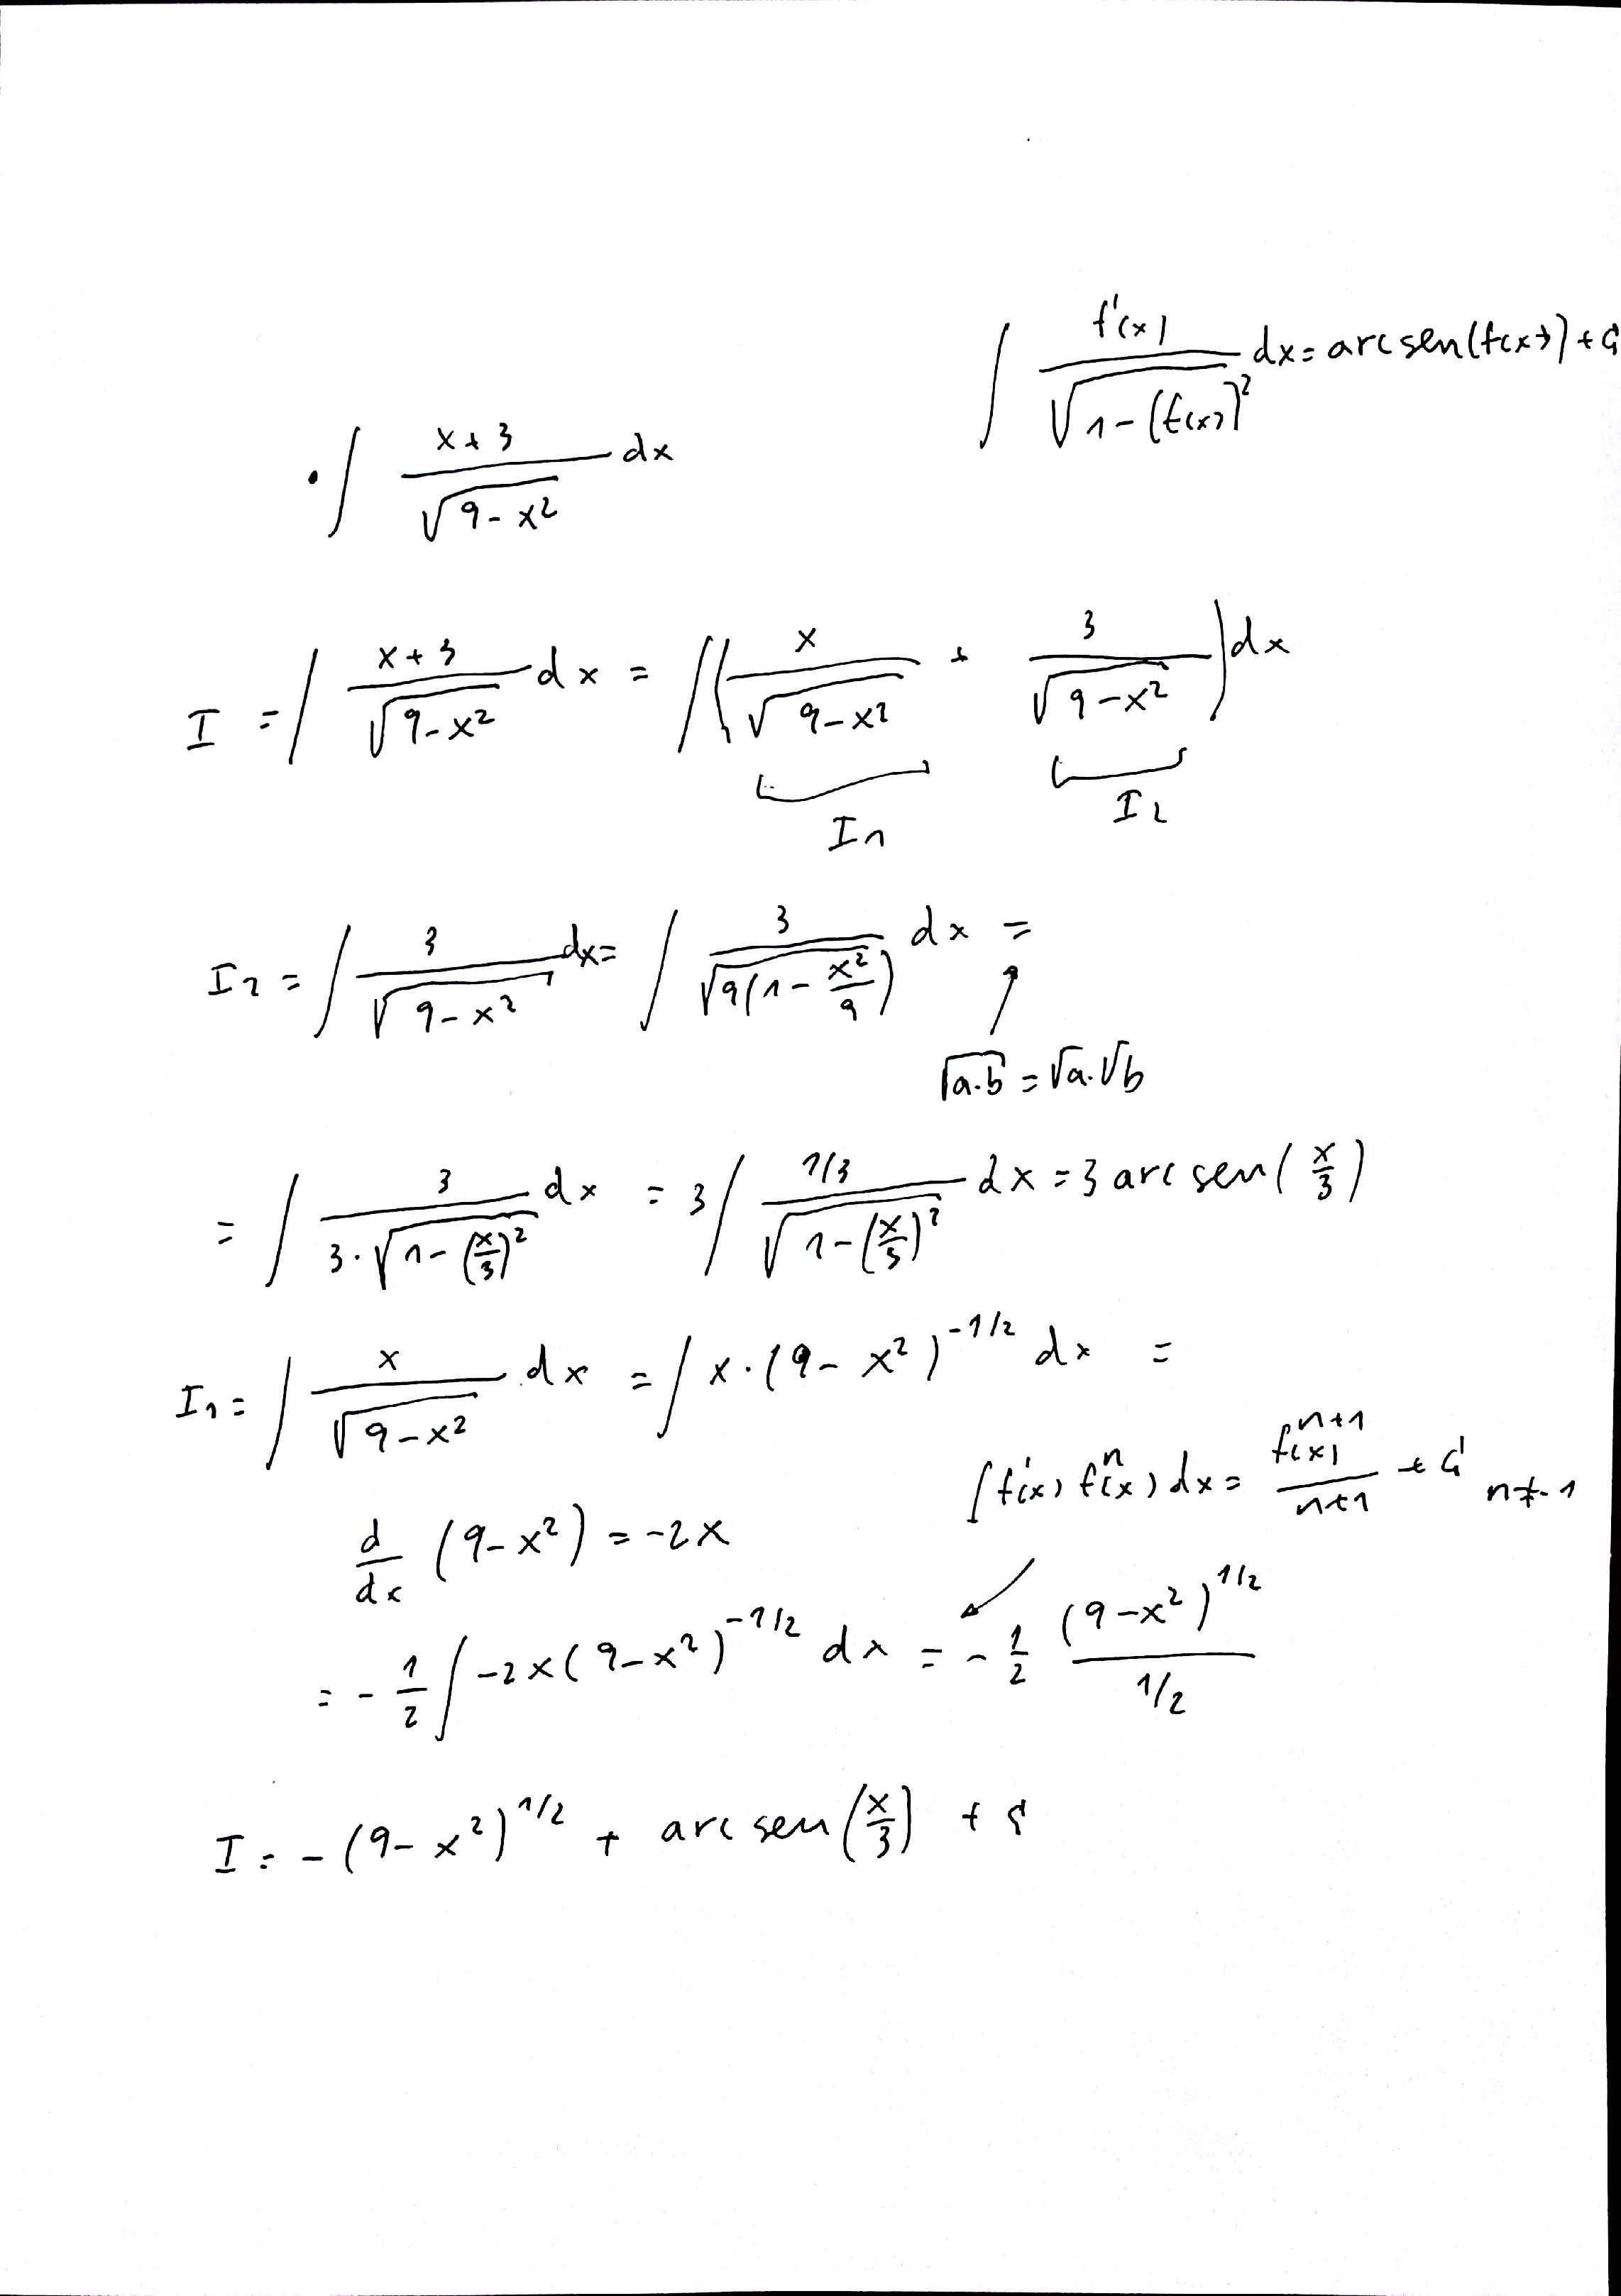 ∫ f'(x) / √(1-(f(x))²) dx = arcsen(f(x)) + C
· ∫ (x+3) / √(9-x²) dx
I = ∫ (x+3) / √(9-x²) dx = ∫( x / √(9-x²) + 3 / √(9-x²) ) dx
I1 I2
I2 = ∫ 3 / √(9-x²) dx = ∫ 3 / √(9(1 - x²/9)) dx =
√(a·b) = √a·√b
= ∫ 3 / (3·√(1-(x/3)²)) dx = 3 ∫ (1/3) / √(1-(x/3)²) dx = 3 arcsen(x/3)
I1 = ∫ x / √(9-x²) dx = ∫ x·(9-x²)^(-1/2) dx =
∫ f'(x) fⁿ(x) dx = f(x)^(n+1) / (n+1) + C n≠-1
d/dx (9-x²) = -2x
= - 1/2 ∫ -2x(9-x²)^(-1/2) dx = - 1/2 (9-x²)^(1/2) / (1/2)
I = -(9-x²)^(1/2) + arcsen(x/3) + C